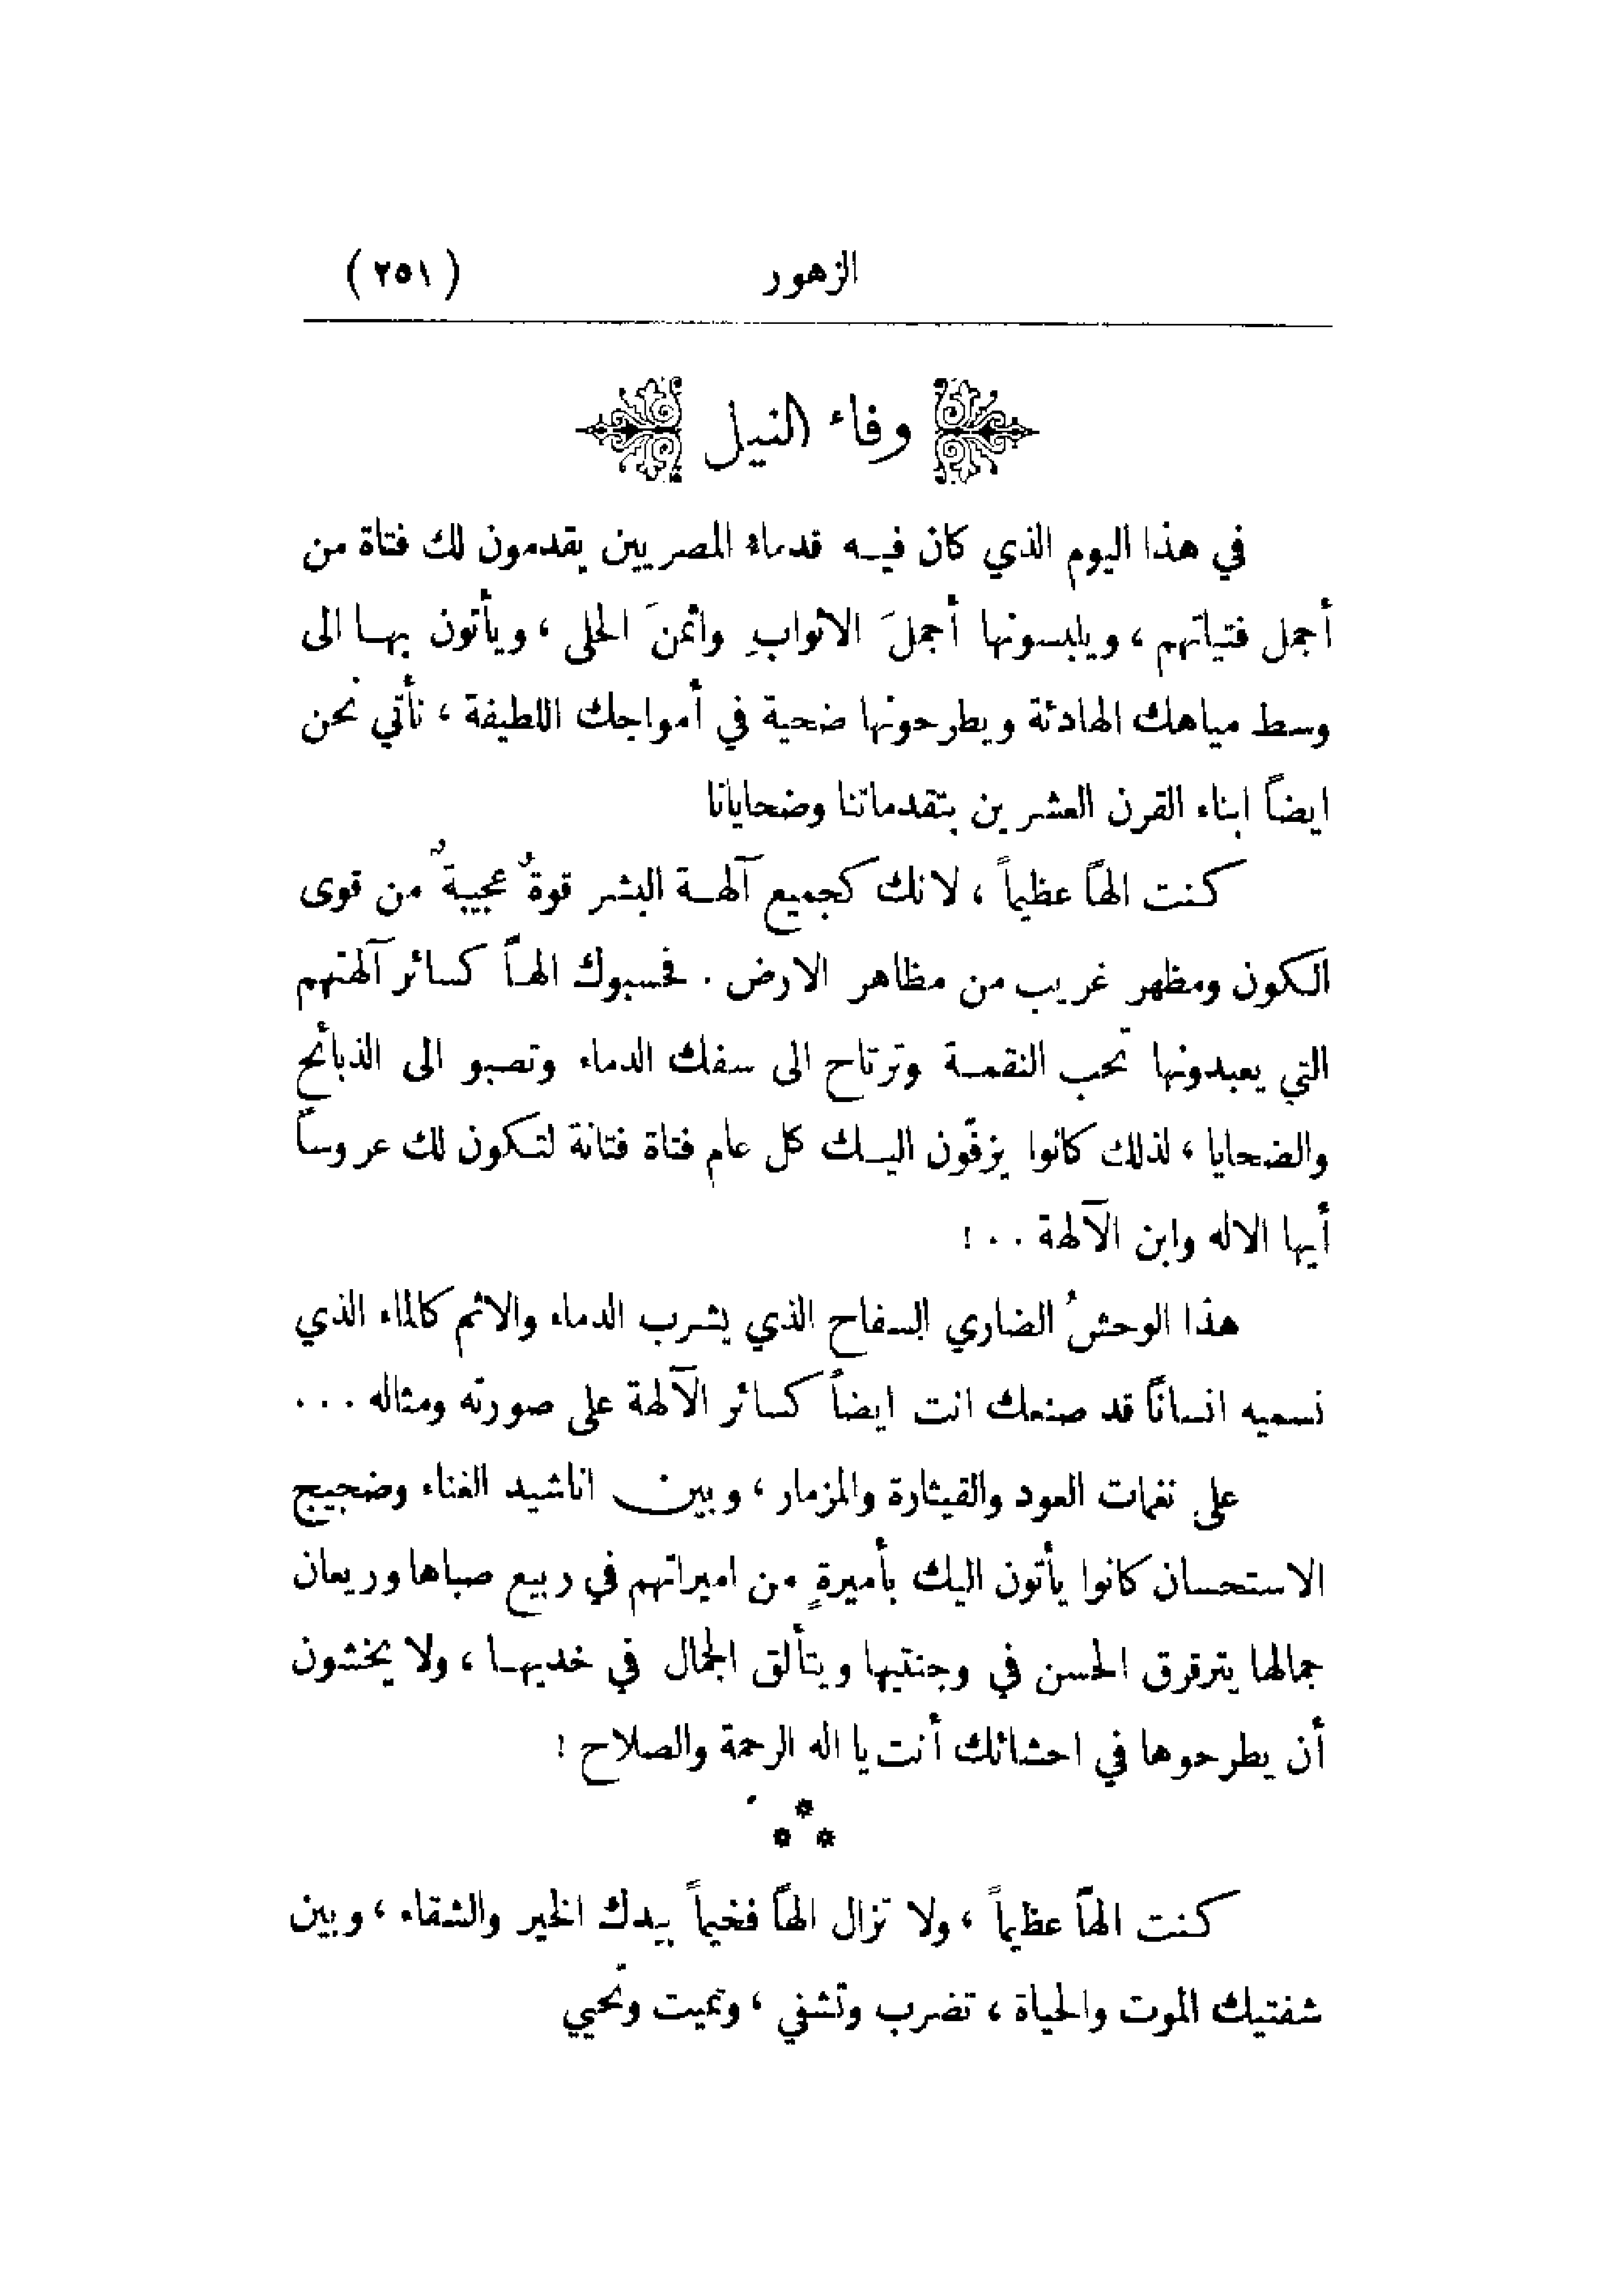 الزهور (٢٥١)
وفاء النيل
في هذا اليوم الذي كان فيه قدماء المصريين يقدمون لك فتاة من
أجمل فتياتهم ، ويلبسونها أجملَ الاثوابِ واثمنَ الحلى ، ويأتون بها الى
وسط مياهك الهادئة ويطرحونها ضحية في أمواجك اللطيفة ، نأتي نحن
ايضاً ابناء القرن العشرين بتقدماتنا وضحايانا
كنت الهاً عظيماً ، لانك كجميع آلهة البشر قوةٌ عجيبةٌ من قوى
الكون ومظهر غريب من مظاهر الارض . فحسبوك الهاً كسائر آلهتهم
التي يعبدونها تحب النقمة وترتاح الى سفك الدماء وتصبو الى الذبائح
والضحايا ، لذلك كانوا يزفّون اليك كل عام فتاة فتانة لتكون لك عروساً
أيها الاله وابن الآلهة . . !
هذا الوحشُ الضاري السفاح الذي يشرب الدماء والاثم كالماء الذي
نسميه انساناً قد صنعك انت ايضاً كسائر الآلهة على صورته ومثاله . . .
على نغمات العود والقيثارة والمزمار ، وبين اناشيد الغناء وضجيج
الاستحسان كانوا يأتون اليك بأميرةٍ من اميراتهم في ربيع صباها وريعان
جمالها يترقرق الحسن في وجنتيها ويتألق الجمال في خديها ، ولا يخشون
أن يطرحوها في احشائك أنت يا اله الرحمة والصلاح !
* * *
كنت الهاً عظيماً ، ولا تزال الهاً فخيماً بيدك الخير والشقاء ، وبين
شفتيك الموت والحياة ، تضرب وتشفي ، وتميت وتحيي